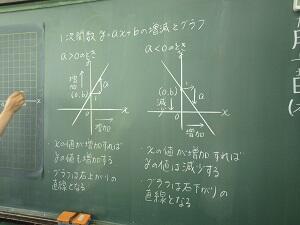 1次関数 y=ax+bの増減とグラフ
a>0のとき
y
増加
(0,b)
1
a
x
0
増加
xの値が増加すれば
yの値も増加する
グラフは右上がりの
直線となる
a<0のとき
y
(0,b)
1
a
減少
x
0
増加
xの値が増加すれば
yの値は減少する
グラフは右下がりの
直線となる
x